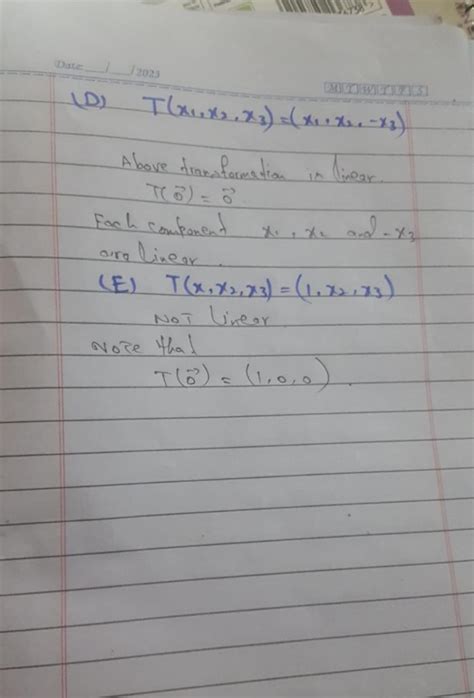 Date __/__/2023
M T W T F S
(D) T(x₁, x₂, x₃) = (x₁, x₂, -x₃)
Above transformation in linear.
T(0⃗) = 0⃗
Each component x₁, x₂ and -x₃
are linear.
(E) T(x, x₂, x₃) = (1, x₂, x₃)
NOT Linear
Note that
T(0⃗) = (1, 0, 0).